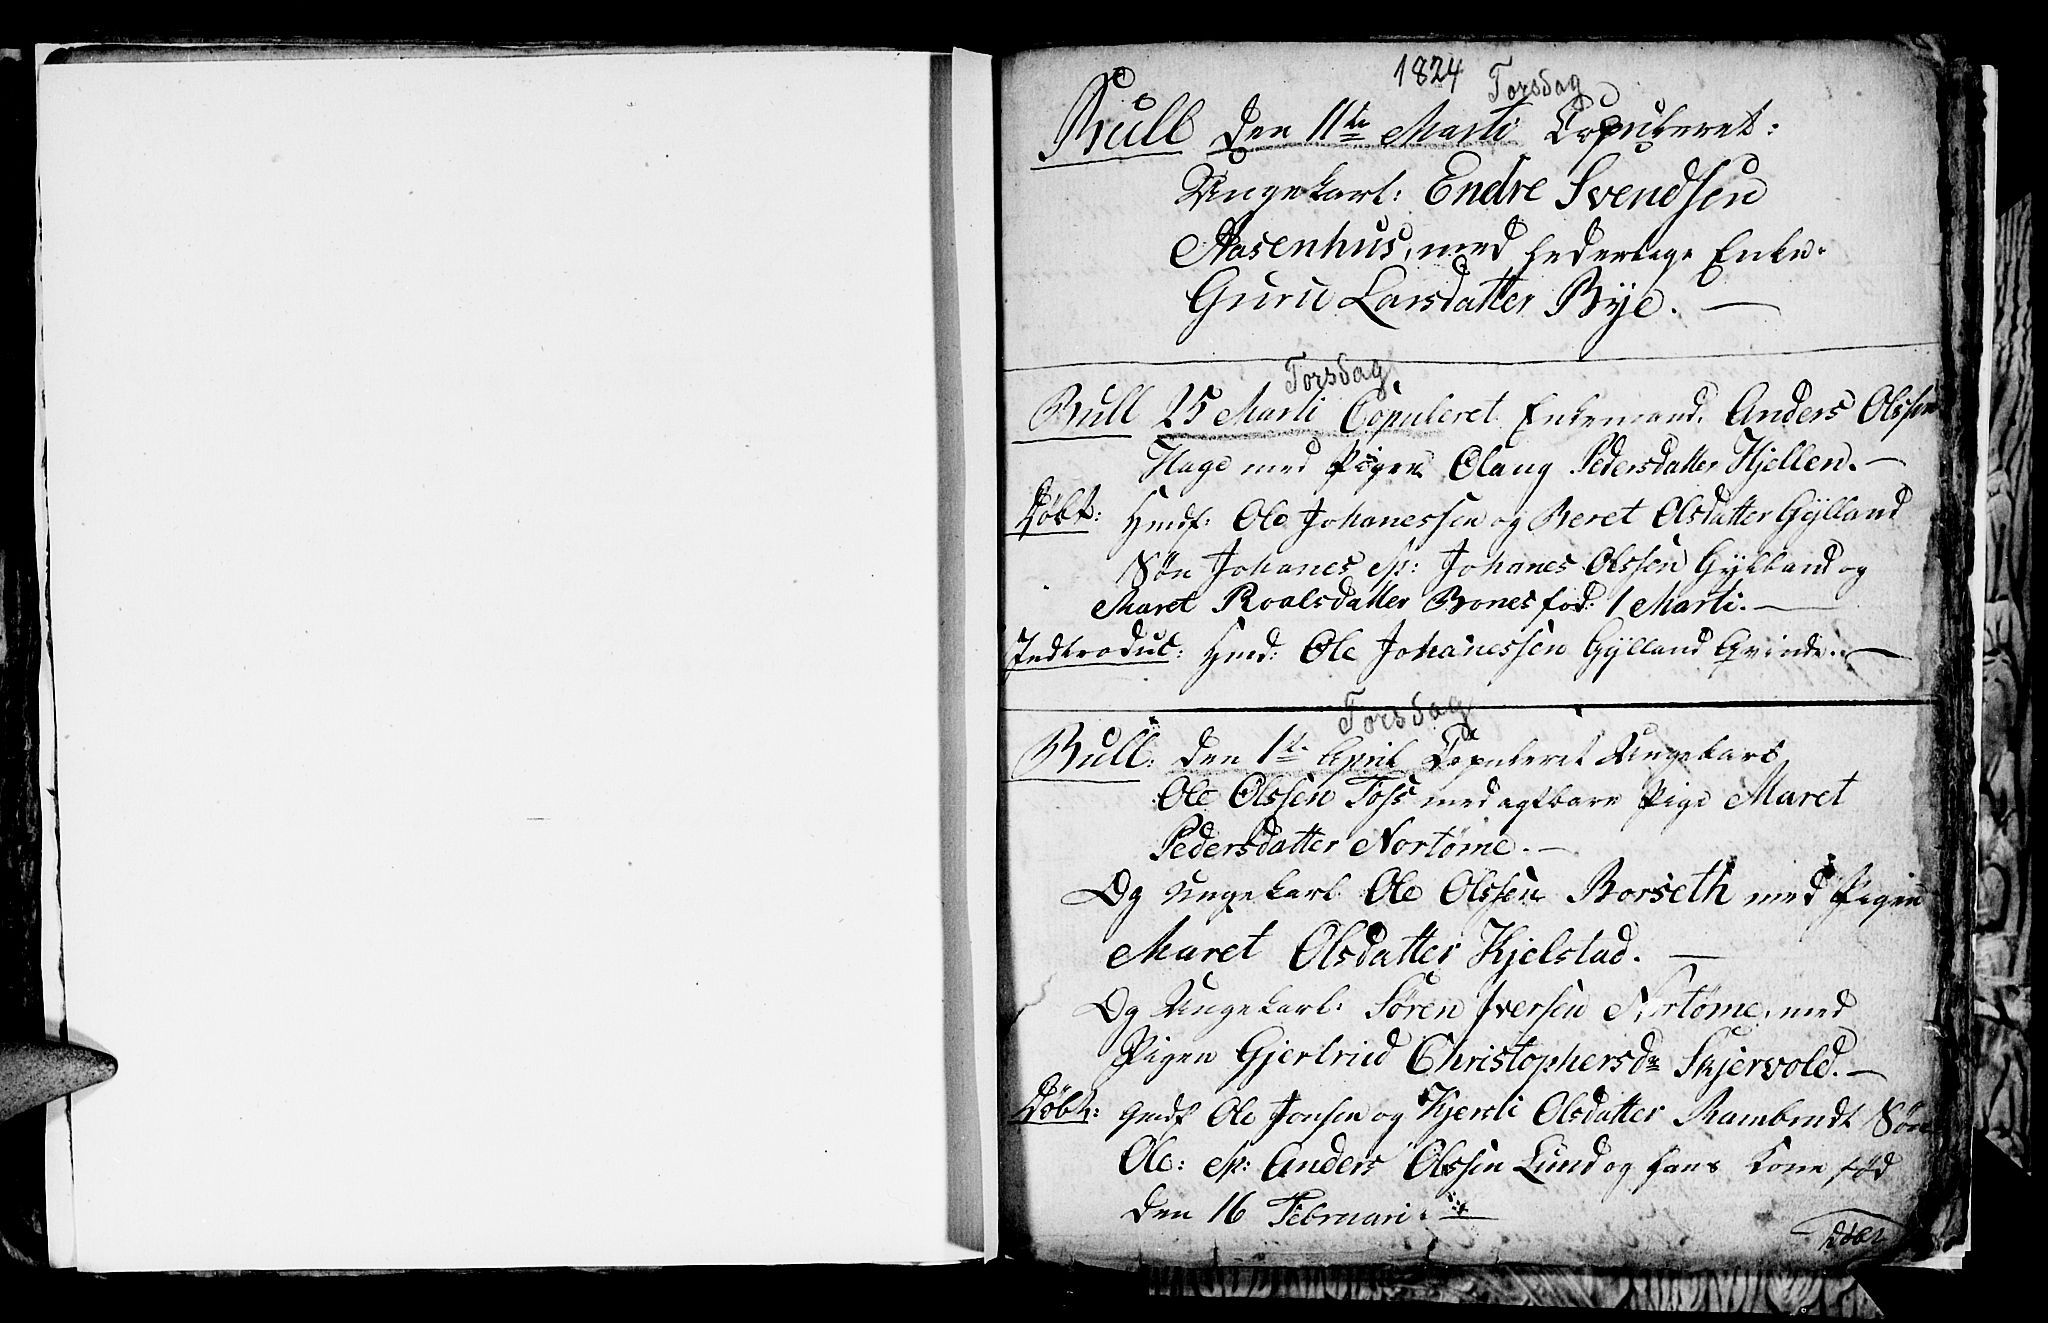 1824 Torsdag
Bull den 11te Marti Copuleret:
Ungekarl: Endre Svendsen
Aasenhus, med hederlege Enke.
Guru Larsdatter Bÿe. —
Torsdag
Bull 25 Marti Copuleret Enkemand. Anders Olssen
Hage med Pigen Olaug Pedersdatter Kjellen. —
Døbt: Hmdf: Ole Johanessen og Beret Olsdatter Gÿlland
Søn Johanes sp: Johanes Olssen Gÿlland og
Maret Roalsdatter Bones fød: 1 Marti. —
Indtroduc: Hmd: Ole Johanessen Gÿlland Qvinde. —
Torsdag
Bull: den 1te April Copuleret Ungekarl
Ole Olssen Foss med agtbare Pige Maret
Pedersdatter Nortøme. —
Og Ungekarl Ole Olssen Borseth med Pigen
Maret Olsdatter Kjelstad. —
Og Ungekarl: Søren Iversen Nortøme, med
Pigen Gjertrud Christophersdr Skjervold. —
Døbt: Gmdf Ole Jonsen og Kjersti Olsdatter Rambrudt Søn
Ole: sp: Anders Olssen Lund og hans Kone fød
den 16 Februari. —
Døbt